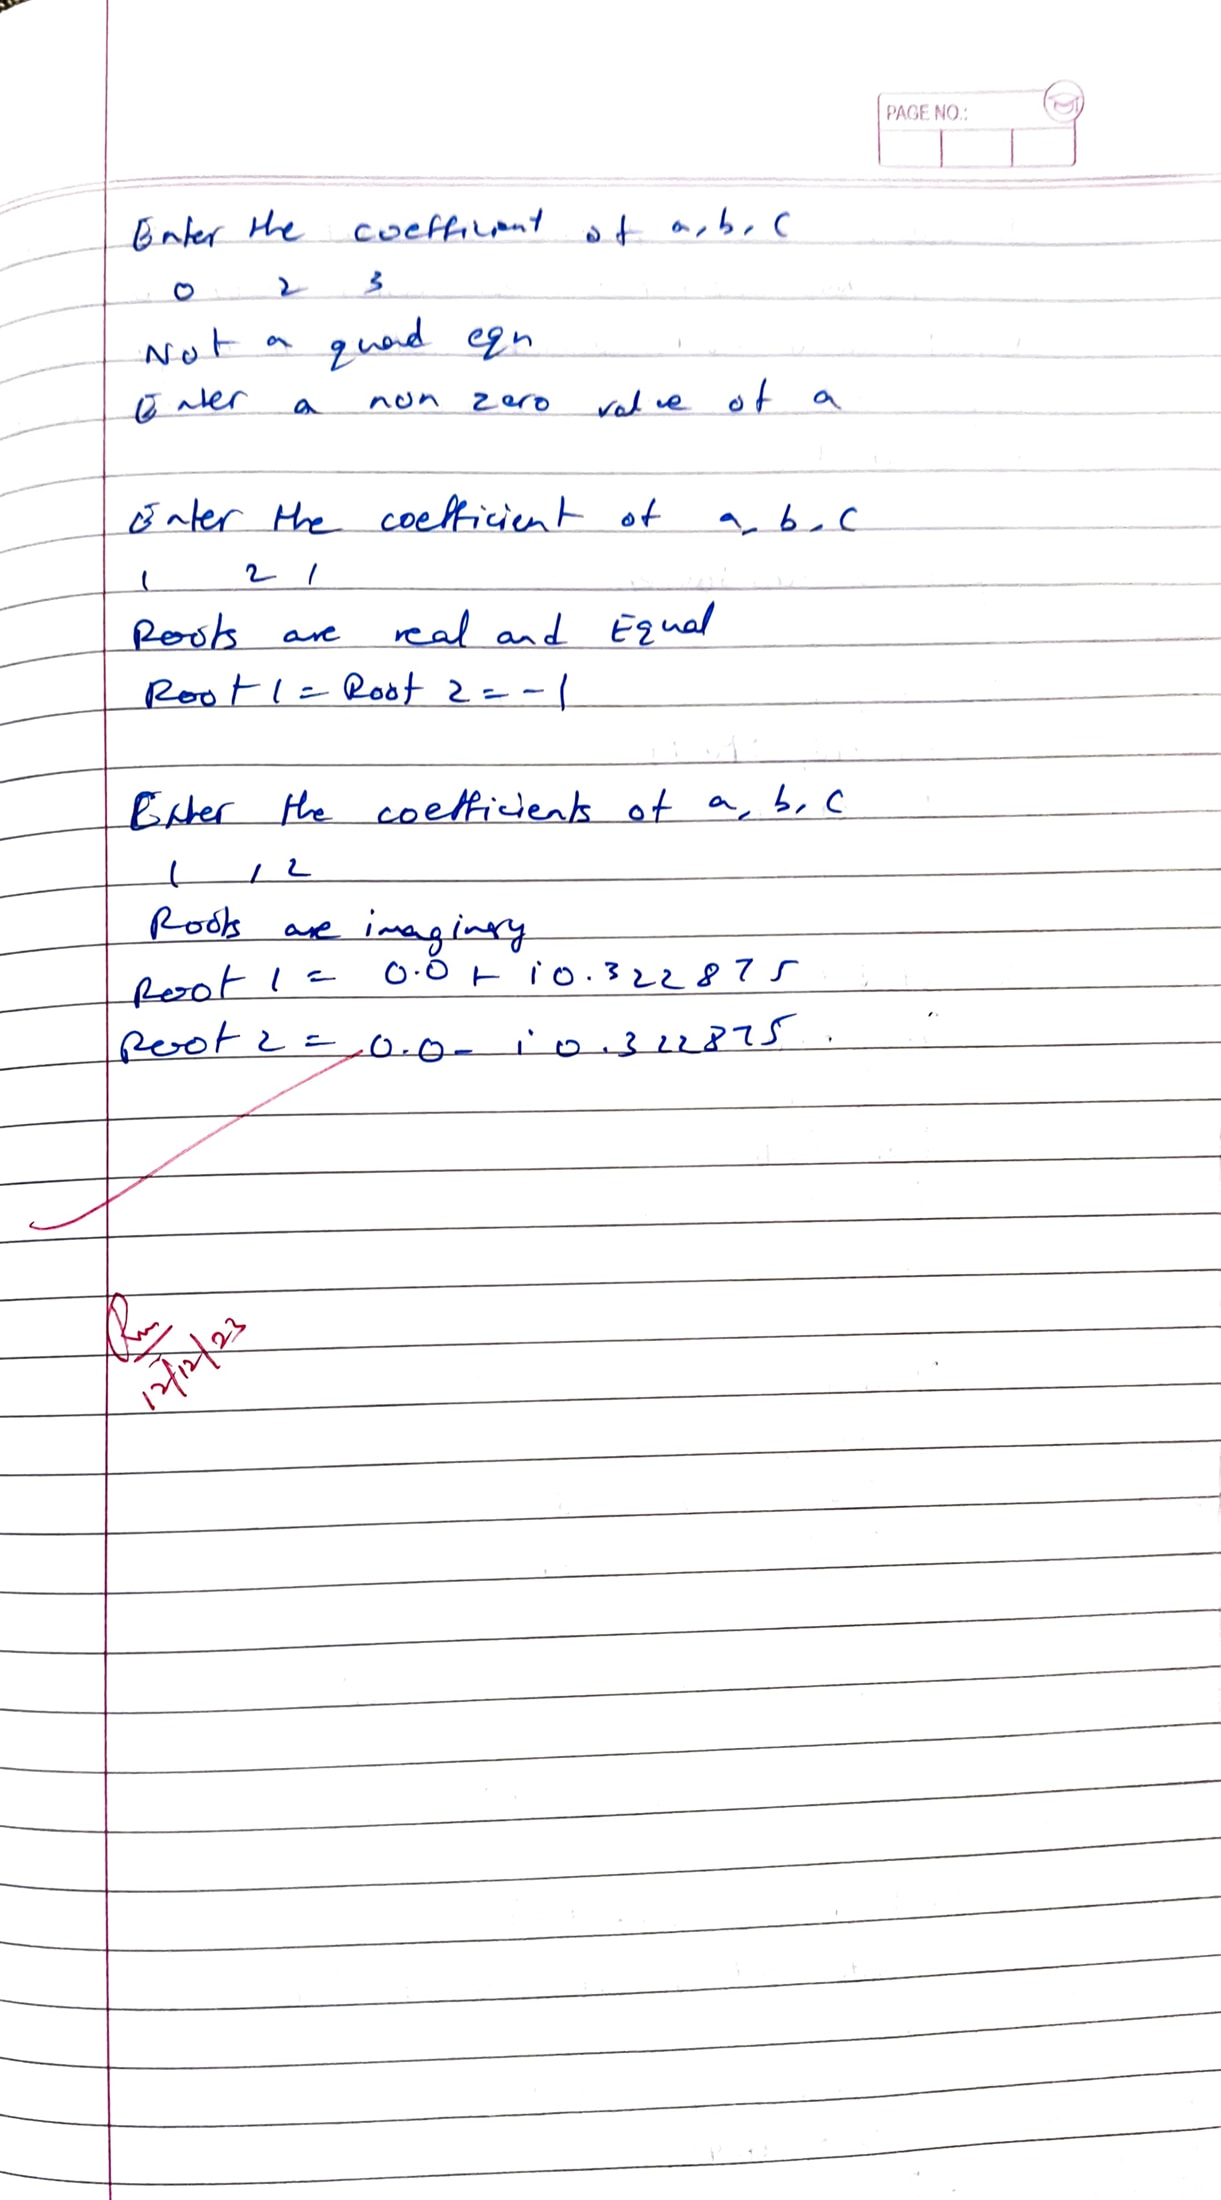 PAGE NO.:
Enter the coefficient of a, b, c
0 2 3
Not a quad eqn
Enter a non zero value of a
Enter the coefficient of a, b, c
1 2 1
Roots are real and Equal
Root 1 = Root 2 = -1
Enter the coefficients of a, b, c
1 1 2
Roots are imaginary
Root 1 = 0.0 + i0.322875
Root 2 = 0.0 - i0.322875.
12/12/23